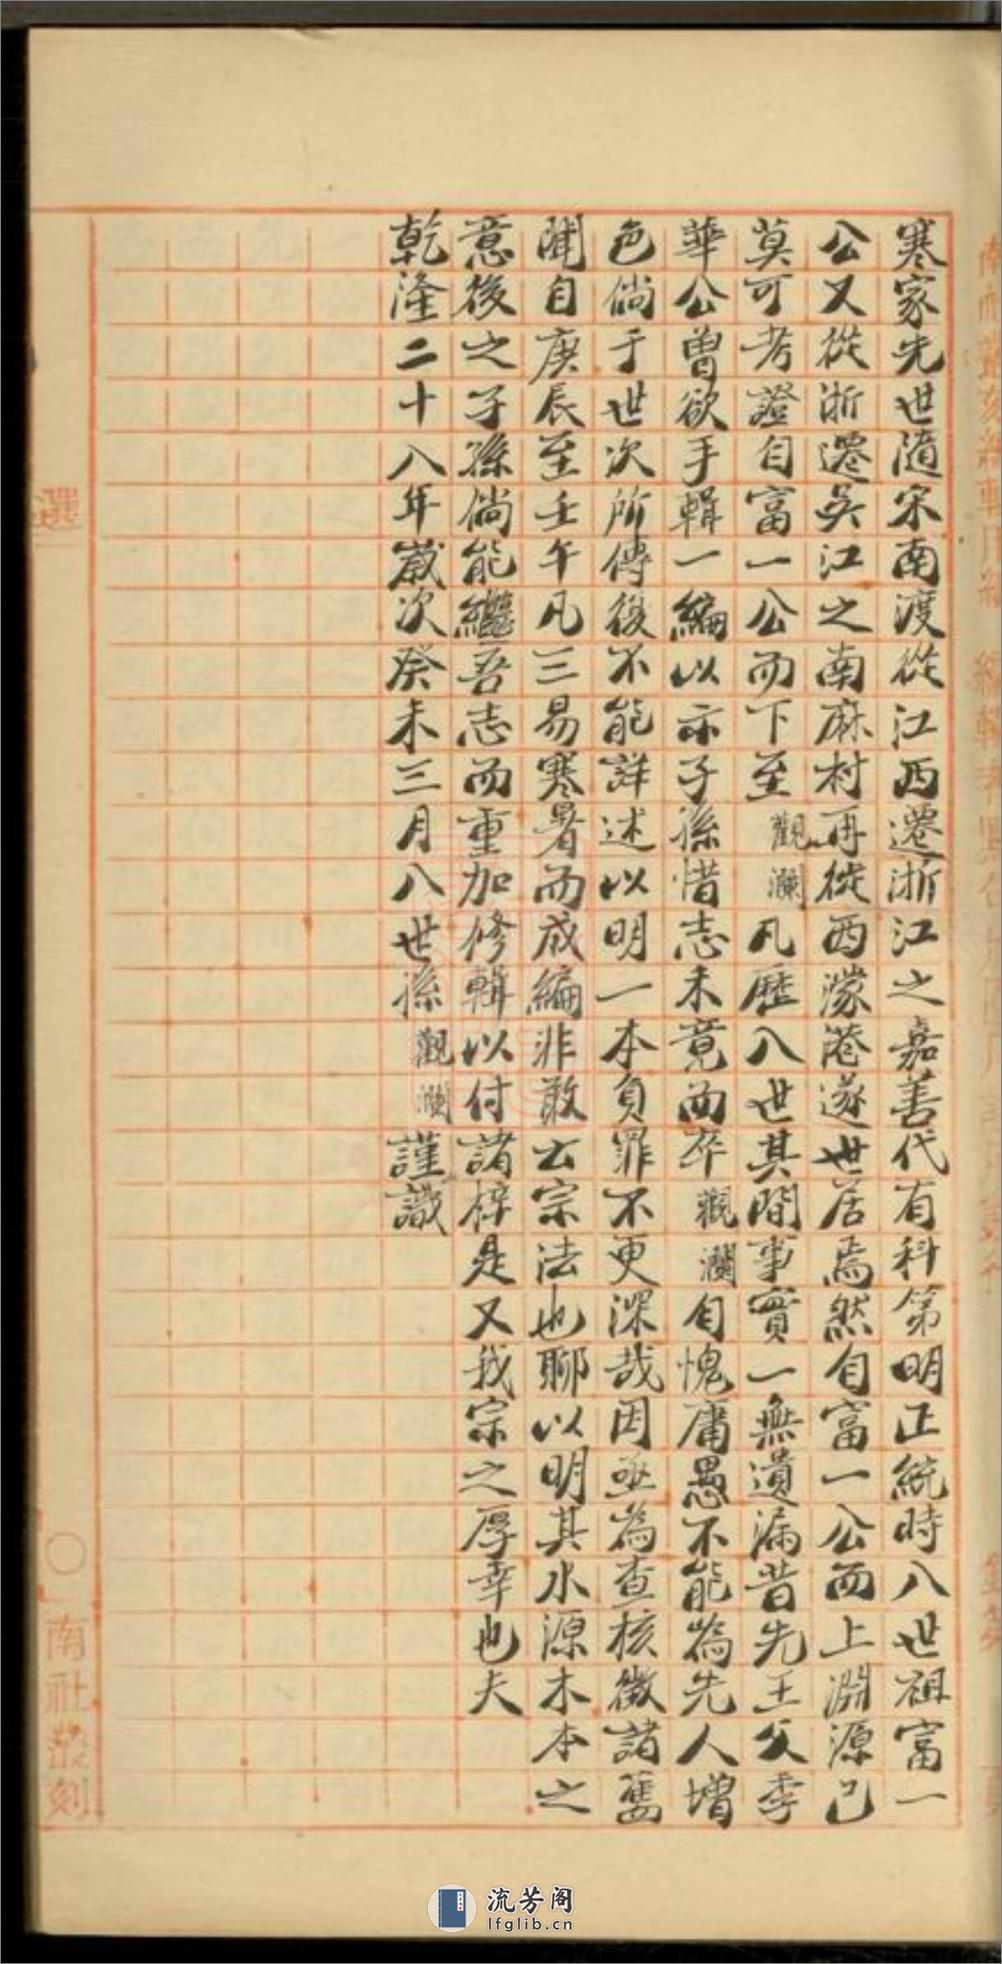 寒家先世隨宋南渡從江西遷浙江之嘉善代有科第明正統時八世祖富一
公又從浙遷吳江之南麻村再從西濛港遂世居焉然自富一公而上淵源已
莫可考證自富一公而下至觀瀾凡歷八世其間事實一無遺漏昔先王父季
華公曾欲手輯一編以示子孫惜志未竟而卒觀瀾自愧庸愚不能為先人增
色倘于世次所傳後不能詳述以明一本負罪不更深哉因亟為查核徵諸舊
聞自庚辰至壬午凡三易寒暑而成編非敢云宗法也聊以明其水源木本之
意後之子孫倘能繼吾志而重加修輯以付諸梓是又我宗之厚幸也夫
乾隆二十八年歲次癸未三月八世孫觀瀾謹識
選
〇
南社叢刻
流芳阁
lfglib.cn